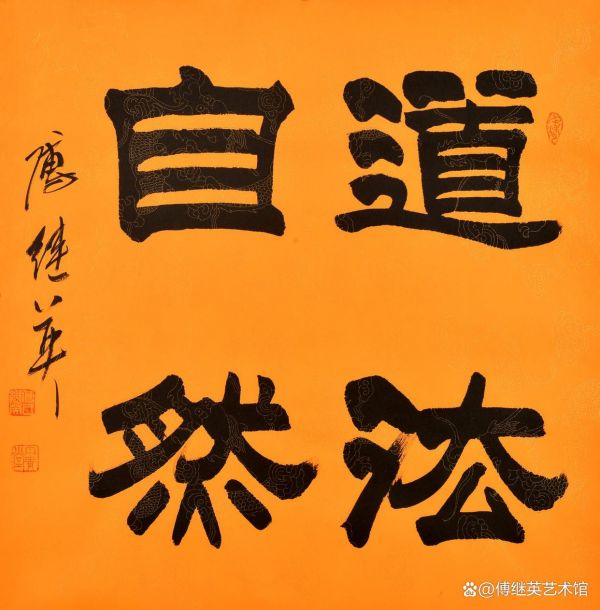 道法
自然
傅继英
傅继英艺术馆